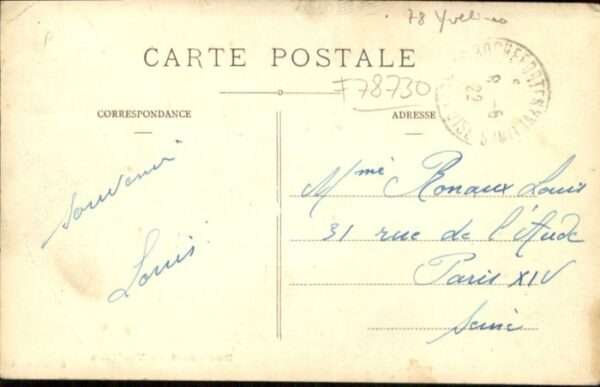 78 Yvelines
CARTE POSTALE
F78730
CORRESPONDANCE
ADRESSE
ROCHEFORT-EN-YVELINES
8 -6
22
Souvenir
Louis
Mme Ronaux Louis
31 rue de l'Aude
Paris XIV
Seine